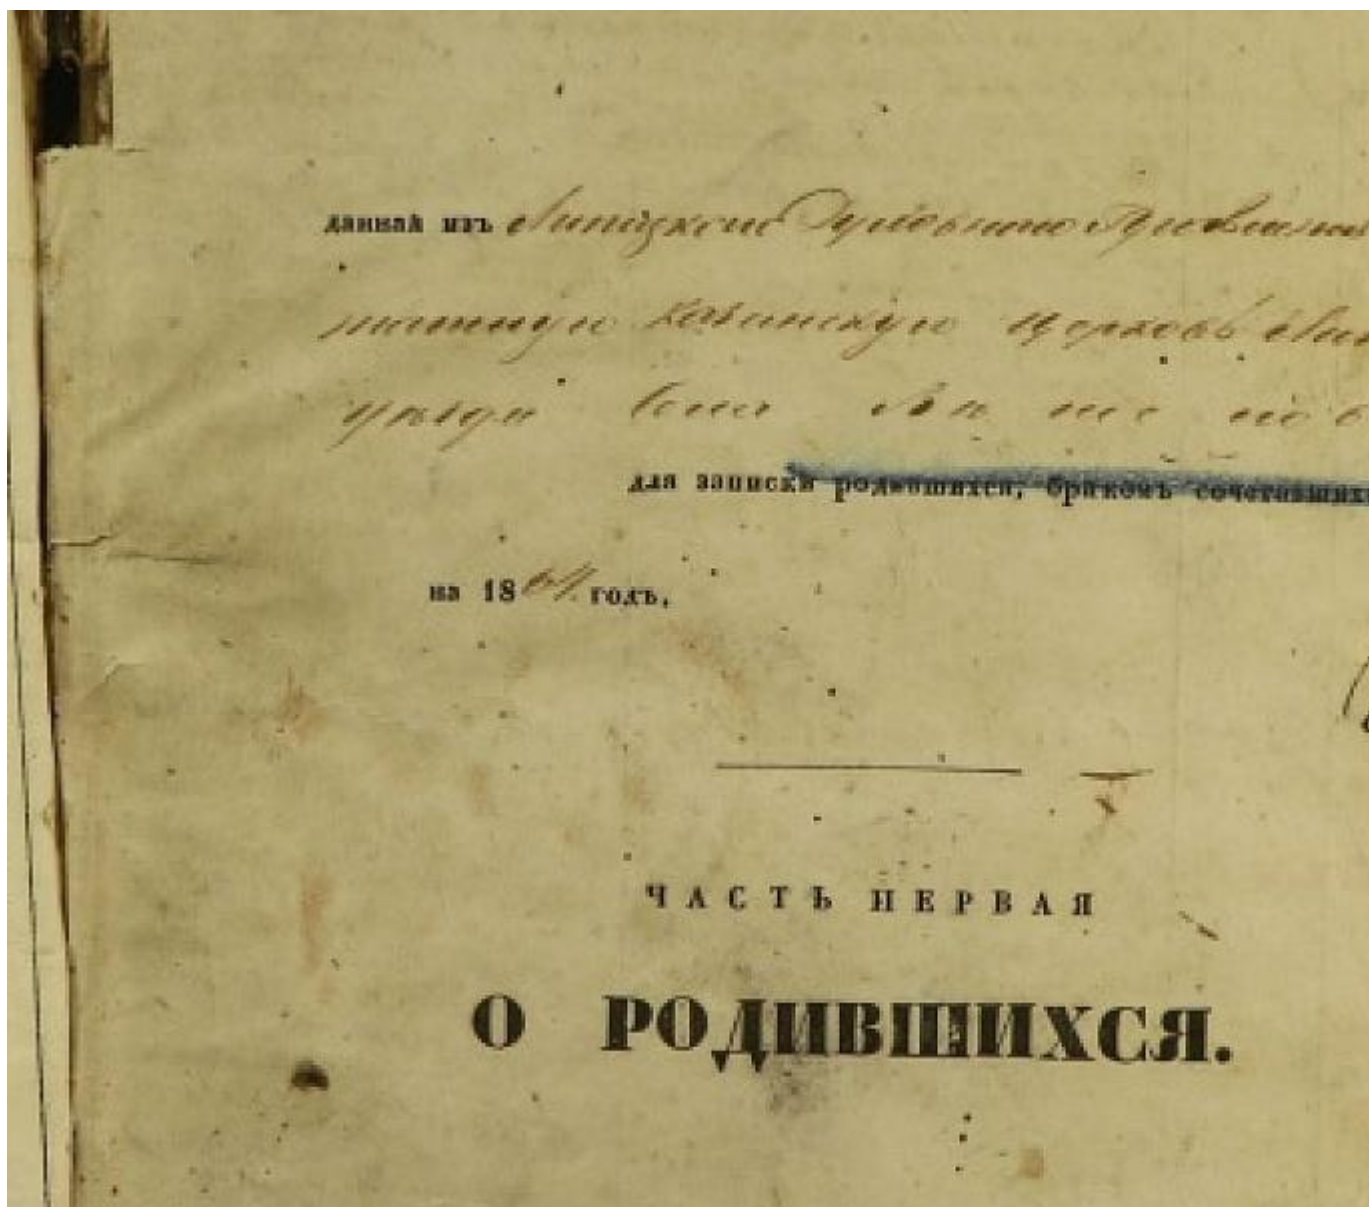 данная изъ Липецкого Духовного Правления
штатную казанскую церковь Лип
уезда села
для записки родившихся, бракомъ сочетавшихс
на 1864 годъ,
ЧАСТЬ ПЕРВАЯ
О РОДИВШИХСЯ.